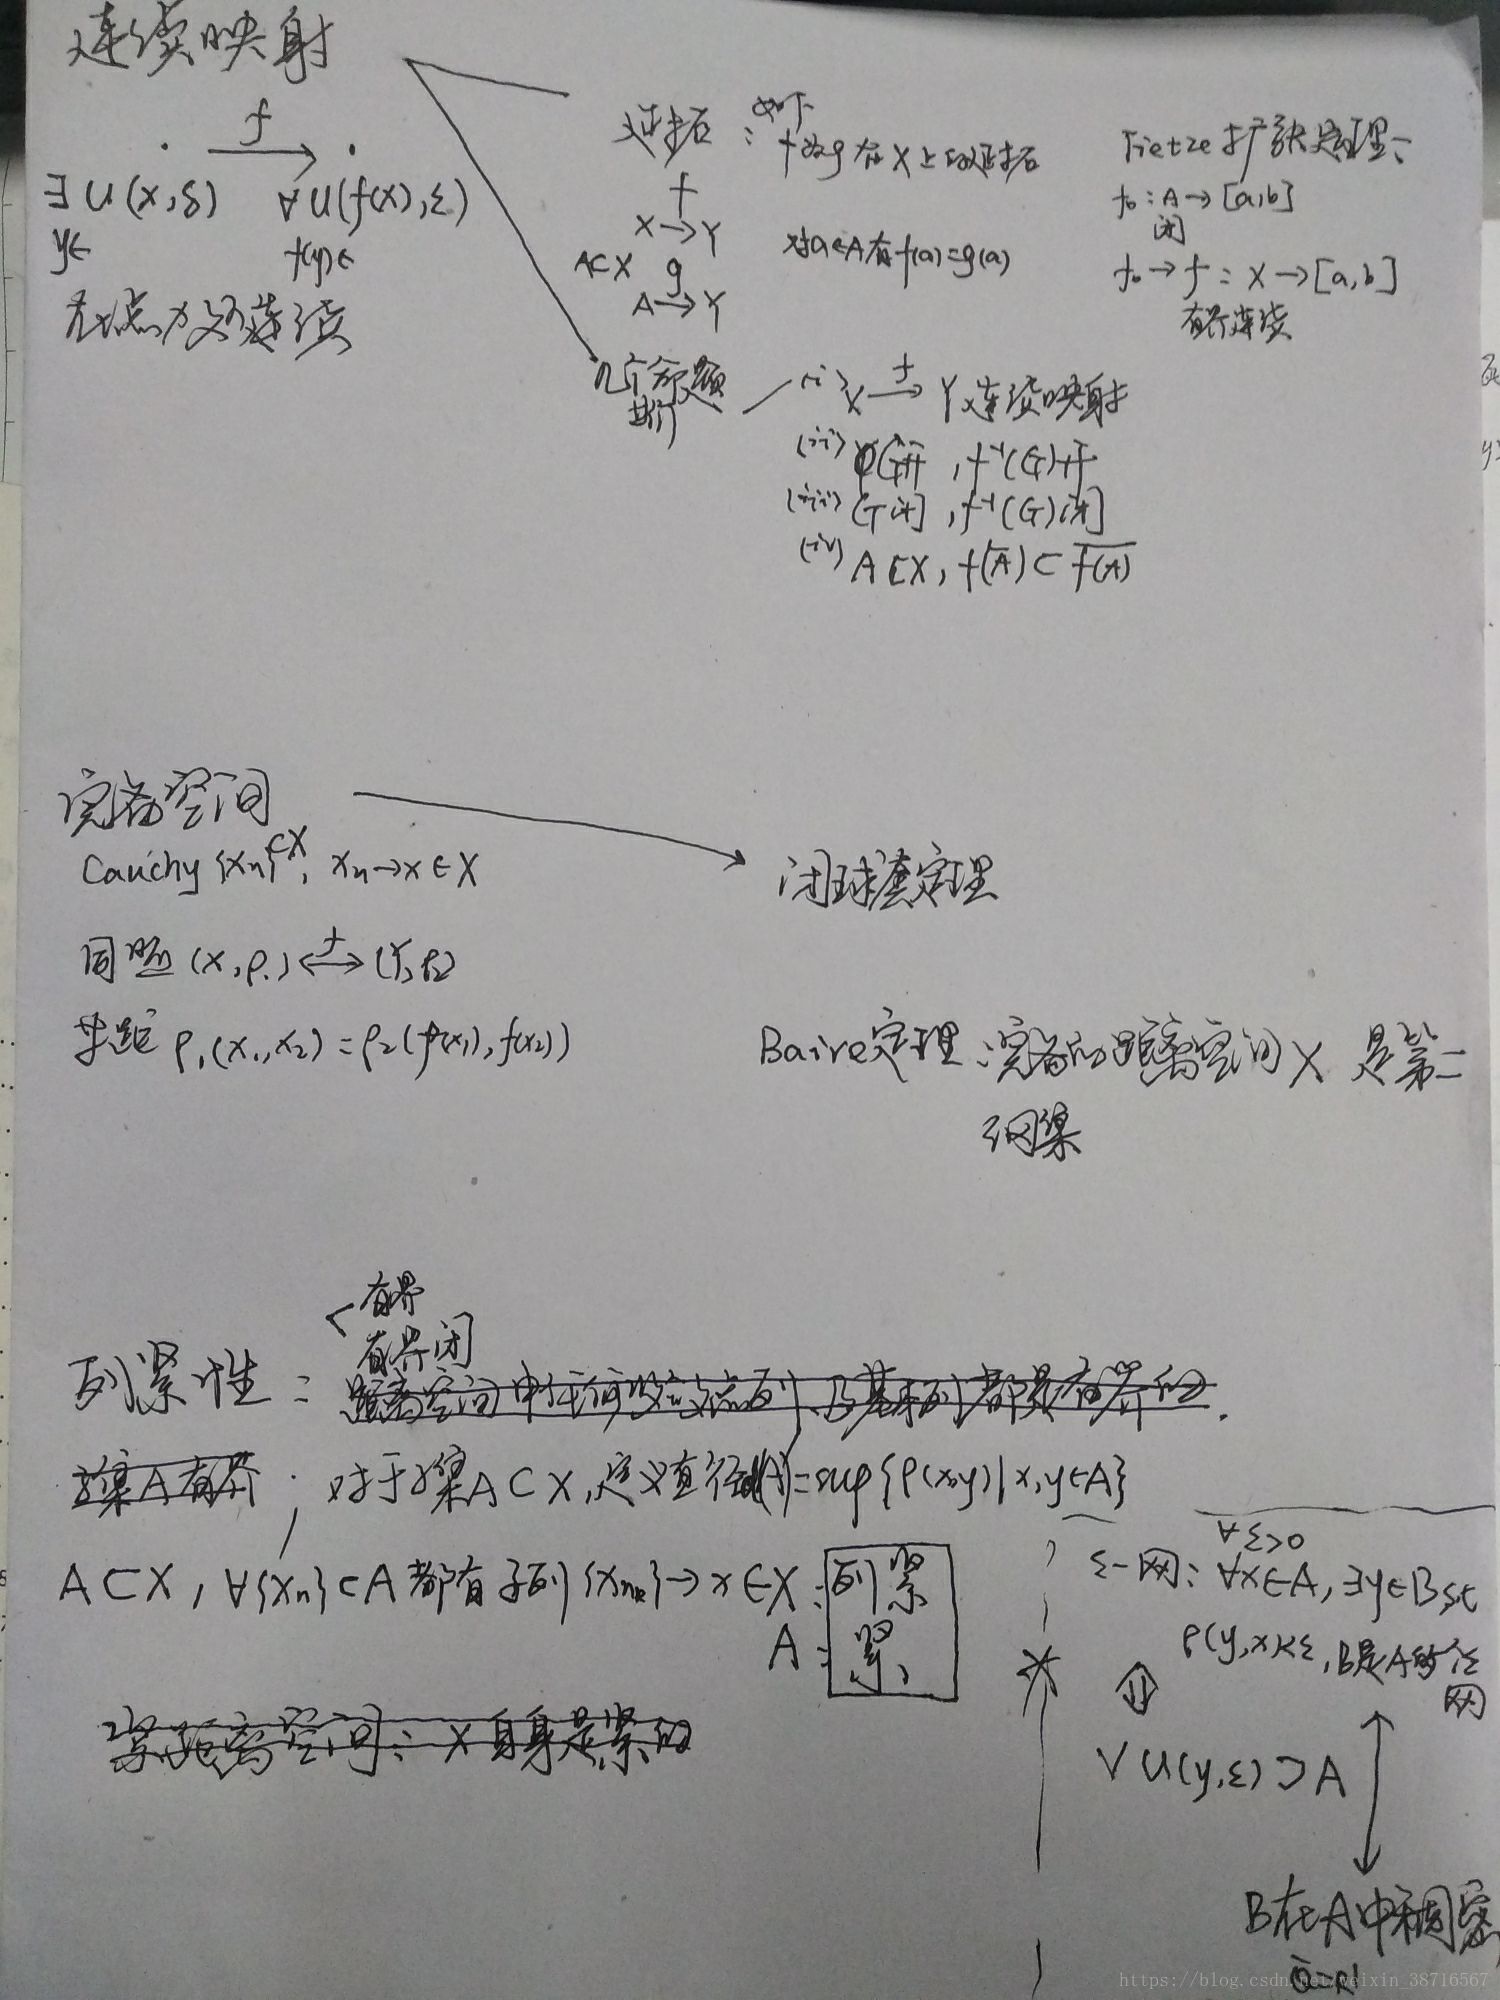 连续映射
f
∃ U(x,δ) ∀U(f(x),ε)
y∈ f(y)∈
在点x处连续
延拓: 如下
f为g在X上的延拓
f
X→Y
A⊂X g
A→Y
对a∈A有f(a)=g(a)
Tietze扩张定理:
f₀:A→[a,b]
闭
f₀→f:X→[a,b]
有界连续
几个命题
等价
(i) X f→ Y连续映射
(ii) G开, f⁻¹(G)开
(iii) G闭, f⁻¹(G)闭
(iv) A⊂X, f(A̅)⊂f(A)̅
完备空间
Cauchy {xn}⊂X, xn→x∈X
闭球套定理
同胚 (X,ρ₁) f↔ (Y,ρ₂)
等距 ρ₁(x₁,x₂)=ρ₂(f(x₁),f(x₂))
Baire定理:完备的距离空间X 是第二
纲集
有界
有界闭
列紧性: 距离空间中任何收敛点列及基本列都是有界的.
子集A有界: 对于子集A⊂X,定义直径d(A)=sup{ρ(x,y)|x,y∈A}
A⊂X, ∀{xn}⊂A 都有子列{xnk}→x∈X:列紧
A:紧
紧距离空间: X自身是紧的
∀ε>0
ε-网: ∀x∈A, ∃y∈B s.t
ρ(y,x)<ε, B是A的ε
网
∪U(y,ε)⊃A
B在A中稠密
Q̅=R¹
https://blog.csdn.net/weixin_38716567